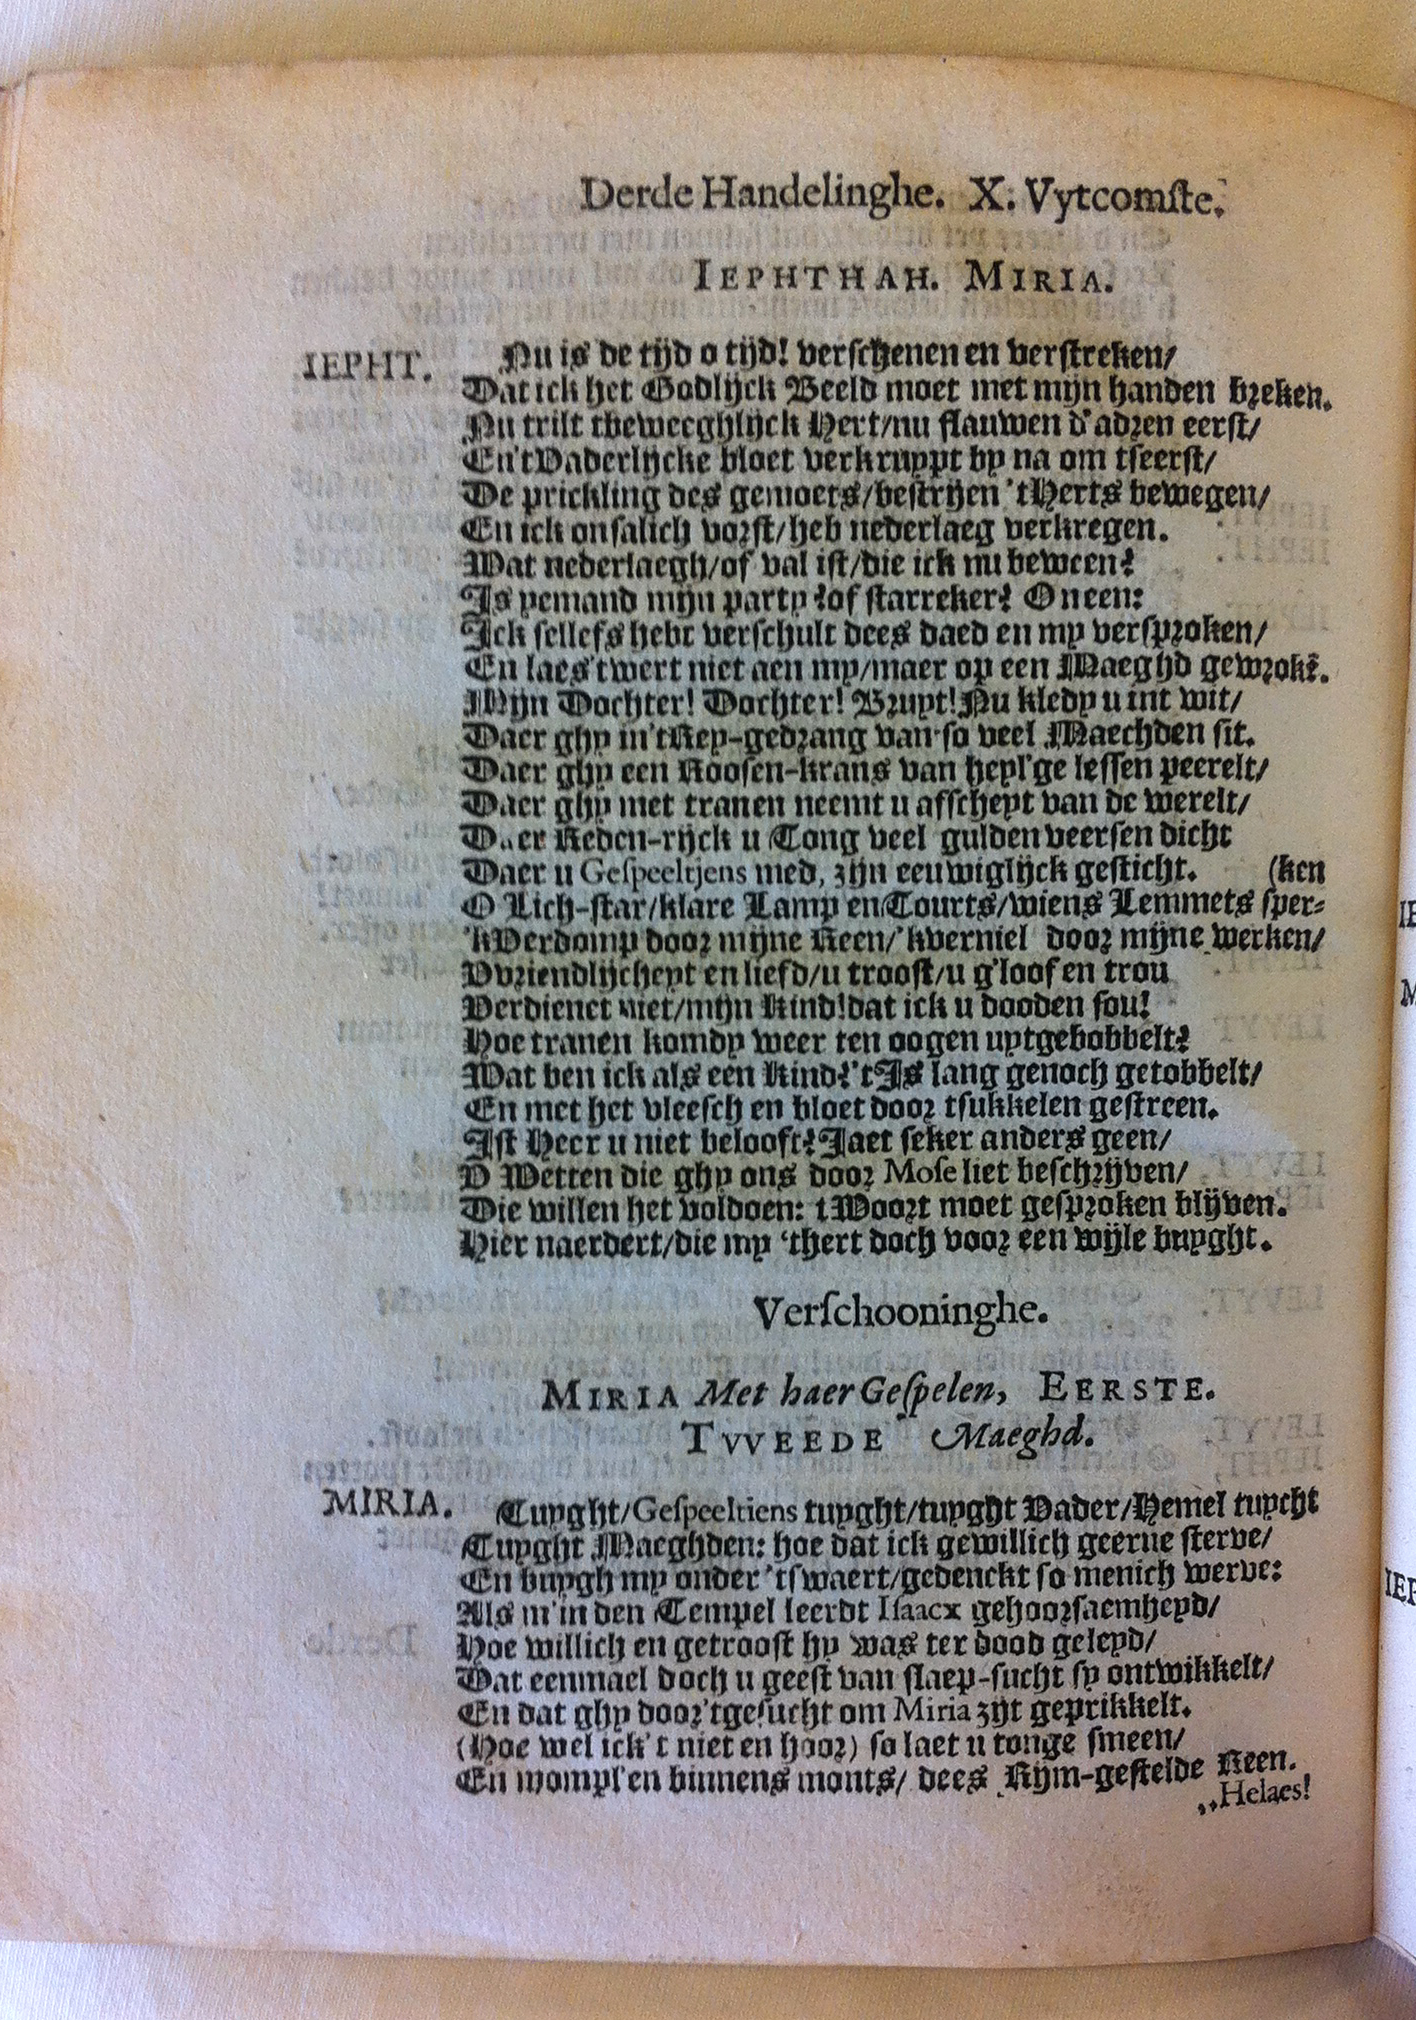 Derde Handelinghe. X. Vytcomste.
IEPHTHAH. MIRIA.
IEPHT. Nu is de tijd o tijd! verschenen en verstreken/
Dat ick het Godlijck Beeld moet met mijn handen breken.
Nu trilt tbeweeghlijck Hert/nu flauwen d'adren eerst/
En't Vaderlijcke bloet verkruypt by na om tseerst/
De prickling des gemoets/bestrijen 'tHerts bewegen/
En ick onsalich vorst/heb nederlaeg verkregen.
Wat nederlaegh/of val ist/die ick nu beween?
Is yemand mijn party? of starreker? O neen:
Ick sellefs hebt verschult dees daed en my versproken/
En laes 'twert niet aen my/maer op een Maeghd gewroké.
Mijn Dochter! Dochter! Bruyt! Nu kledy u int wit/
Daer ghy in'tRey-gedrang van so veel Maechden sit.
Daer ghy een Roosen-krans van heyl'ge lessen peerelt/
Daer ghy met tranen neemt u afscheyt van de werelt/
Daer Reden-rijck u Tong veel gulden veersen dicht
Daer u Gespeeltjens med, zijn eeuwiglijck gesticht. (ken
O Lich-star/klare Lamp en Tourts/wiens Lemmets sper-
'kVerdomp door mijne Reen/'kverniel door mijne werken/
Vvriendlijcheyt en liefd/u troost/u g'loof en trou
Verdienet niet/mijn Kind! dat ick u dooden sou!
Hoe tranen komdy weer ten oogen uytgebobbelt?
Wat ben ick als een Kind? 't Is lang genoch getobbelt/
En met het vleesch en bloet door tsukkelen gestreen.
Ist Heer u niet belooft? Jaet seker anders geen/
D Wetten die ghy ons door Mose liet beschrijven/
Die willen het voldoen: t Woort moet gesproken blijven.
Hier naerdert/die my 'thert doch voor een wijle buyght.
Verschooninghe.
MIRIA Met haer Gespelen, EERSTE.
TVVEEDE Maeghd.
MIRIA. Tuyght/Gespeeltiens tuyght/tuyght Vader/Hemel tuycht
Tuyght Maeghden: hoe dat ick gewillich geerne sterve/
En buygh my onder 'tswaert/gedenckt so menich werve:
Als m'in den Tempel leerdt Isaacx gehoorsaemheyd/
Hoe willich en getroost hy was ter dood geleyd/
Dat eenmael doch u geest van slaep-sucht sy ontwikkelt/
En dat ghy door'tgesucht om Miria zijt geprikkelt.
(Hoe wel ick't niet en hoor) so laet u tonge smeen/
En mompl'en binnens monts/ dees Rijm-gestelde Reen.
,,Helaes!